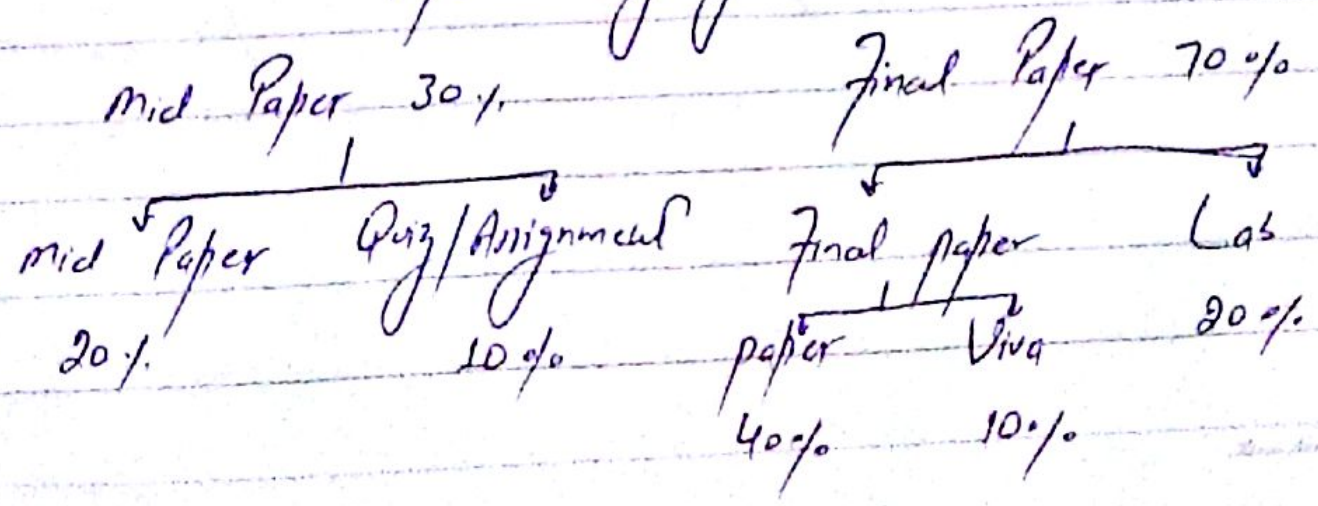 Mid Paper 30% Final Paper 70%
Mid Paper Quiz/Assignment Final paper Lab
20% 10% paper Viva 20%
40% 10%